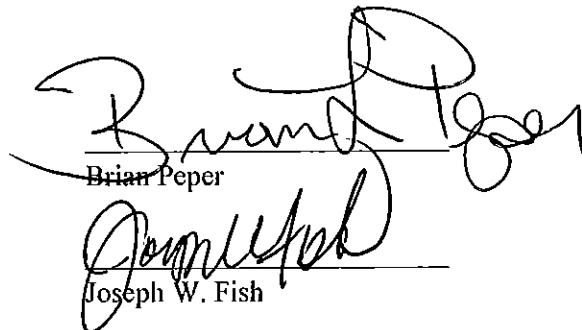 Brian Peper
Brian Peper
Joseph W. Fish
Joseph W. Fish